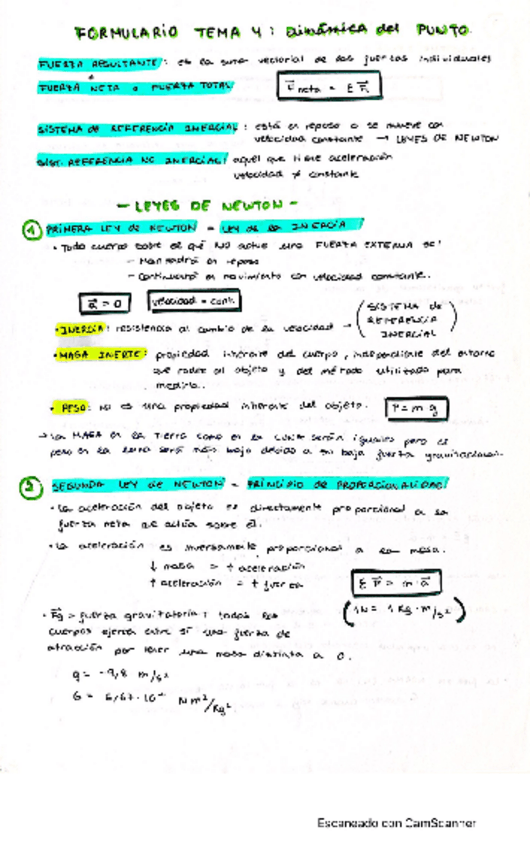 FORMULARIO TEMA 4: Dinámica del PUNTO
FUERZA RESULTANTE: es la suma vectorial de las fuerzas individuales
FUERZA NETA o FUERZA TOTAL F neta = Σ Fi
SISTEMA de REFERENCIA INERCIAL: está en reposo o se mueve con
velocidad constante → LEYES DE NEWTON
SIST. REFERENCIA NO INERCIAL: aquel que tiene aceleración
velocidad ≠ constante
- LEYES DE NEWTON -
① PRIMERA LEY de NEWTON = LEY de la INERCIA
• Todo cuerpo sobre el que NO actúe una FUERZA EXTERNA se:
- Mantendrá en reposo
- Continuará en movimiento con velocidad constante.
a = 0 velocidad = const. (SISTEMA de
• INERCIA: resistencia al cambio de la velocidad → REFERENCIA
INERCIAL)
• MASA INERTE: propiedad inherente del cuerpo, independiente del entorno
que rodea al objeto y del método utilizado para
medirla.
• PESO: no es una propiedad inherente del objeto. P = m g
→ La MASA en la Tierra como en la LUNA serán iguales pero el
peso en la Luna será más bajo debido a su baja fuerza gravitacional.
② SEGUNDA LEY de NEWTON = PRINCIPIO de PROPORCIONALIDAD
• La aceleración del objeto es directamente proporcional a la
fuerza neta que actúa sobre él.
• La aceleración es inversamente proporcional a la masa.
↓ masa = ↑ aceleración
↑ aceleración = ↑ fuerza Σ F = m · a
• Fg = fuerza gravitatoria: todos los (1N = 1 Kg · m/s²)
cuerpos ejercen entre sí una fuerza de
atracción por tener una masa distinta a 0.
g = -9,8 m/s²
G = 6,67·10 N m²/Kg²
Escaneado con CamScanner